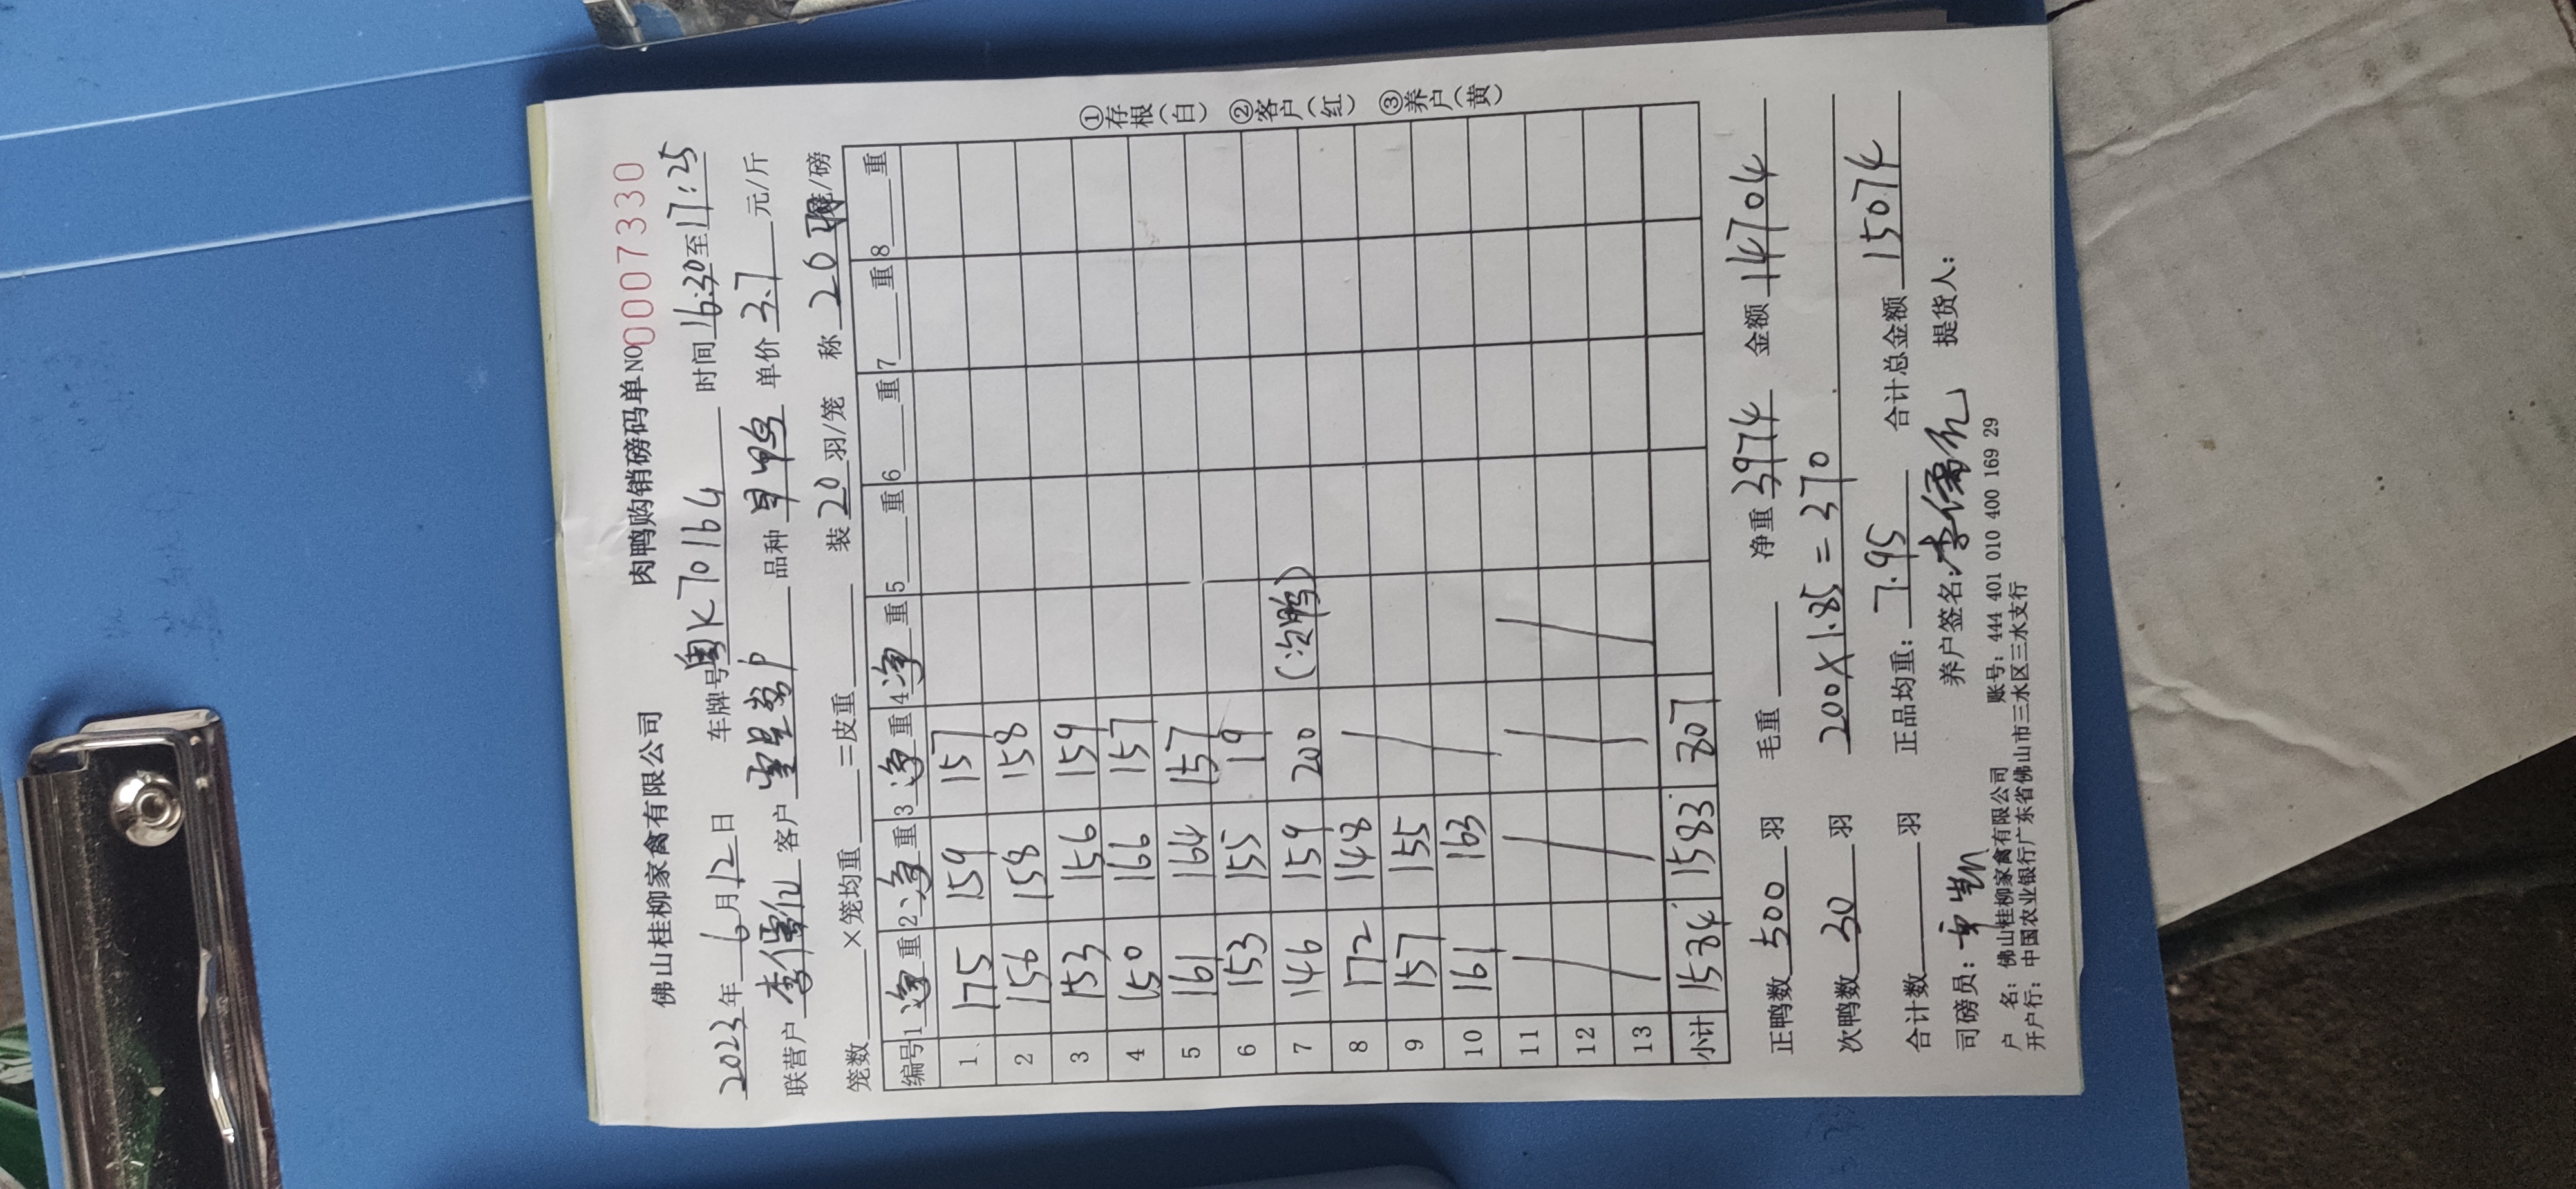 佛山桂柳家禽有限公司 肉鸭购销磅码单 NO 0007330
2023年6月12日 车牌号粤K70164 时间16:30至17:25
联营户 李儒 客户 品种 旱鸭 单价 3.7 元/斤
笼数 ×笼均重 =皮重 装20羽/笼 称 20 /磅
编号 1 净重 2 净重 3 净重 4 净重 5 重 6 重 7 重 8 重
1 175 159 157
2 156 158 158
3 153 156 159
4 150 166 157
5 161 164 157
6 153 155 19
7 146 159 200 (次鸭)
8 172 148
9 157 155
10 161 163
11
12
13
小计 1584 1583 807
正鸭数 500 羽 毛重 净重 3974 金额 14704
次鸭数 30 羽 200×1.85=370
合计数 羽 正品均重: 7.95 合计总金额 15074
司磅员: 养户签名: 李儒 提货人:
户 名: 佛山桂柳家禽有限公司 账号: 444 401 010 400 169 29
开户行: 中国农业银行广东省佛山市三水区三水支行
①存根(白) ②客户(红) ③养户(黄)